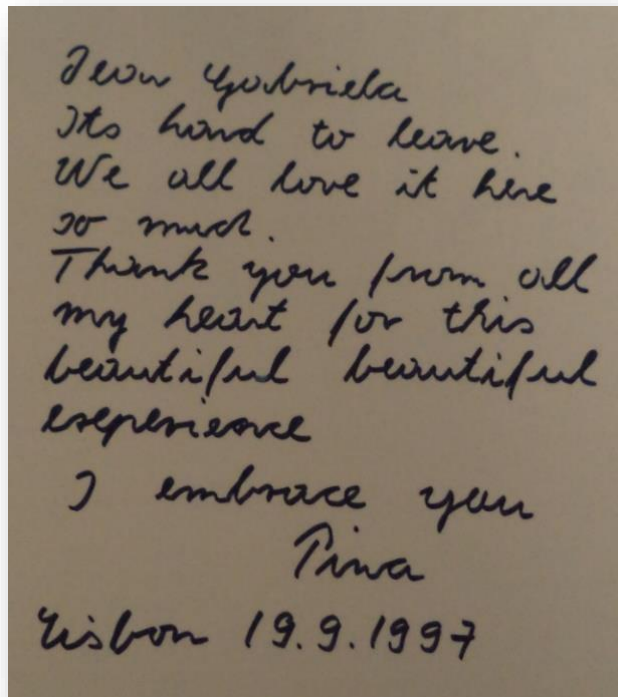 Dear Gabriela
Its hard to leave.
We all love it here
so much.
Thank you from all
my heart for this
beautiful beautiful
experience
I embrace you
Pina
Lisbon 19.9.1997